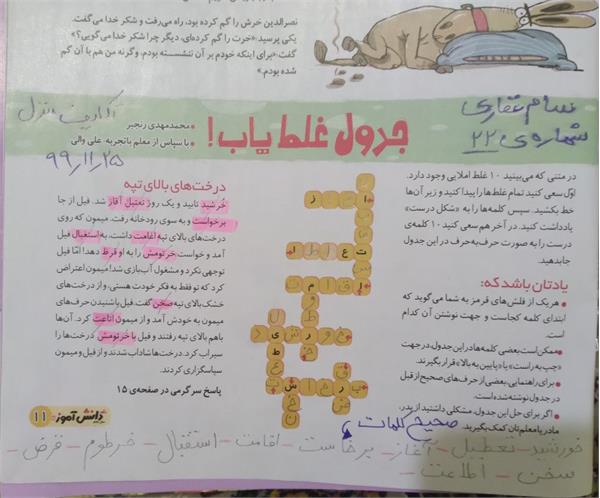 نصرالدین خرش را گم کرده بود. راه می‌رفت و شکر خدا می‌گفت.
یکی پرسید: «خرت را گم کرده‌ای، دیگر چرا شکر خدا می‌گویی؟»
گفت: «برای اینکه خودم بر آن ننشسته بودم، وگرنه من هم با آن گم
شده بودم.»
جدول غلط یاب!
محمدمهدی رنجبر
با سپاس از معلم باتجربه: علی والی
۹۹/۱۱/۲۵
شماره‌ی ۲۲
در متنی که می‌بینید ۱۰ غلط املایی وجود دارد.
اول سعی کنید تمام غلط‌ها را پیدا کنید و زیر آن‌ها
خط بکشید. سپس کلمه‌ها را به «شکل درست»
یادداشت کنید. در آخر هم سعی کنید ۱۰ کلمه‌ی
درست را به صورت حرف‌به‌حرف در این جدول
جا بدهید.
یادتان باشد که:
هر یک از فلش‌های قرمز به شما می‌گوید که
ابتدای کلمه کجاست و جهت نوشتن آن کدام
است.
ممکن است بعضی کلمه‌ها در این جدول، در جهت
«چپ به راست» یا «پایین به بالا» قرار بگیرند.
برای راهنمایی، بعضی از حرف‌های صحیح از قبل
در جدول نوشته شده است.
اگر برای حل این جدول، مشکلی داشتید از پدر،
مادر یا معلم‌تان کمک بگیرید.
درخت‌های بالای تپه
خُرشید تابید و یک روز تعتیل آقاز شد. فیل از جا
برخواست و به سوی رودخانه رفت. میمون که روی
درخت‌های بالای تپه اغامت داشت، به استغبال فیل
آمد و خواست خرتومش را به او قرظ دهد! امّا فیل
توجهی نکرد و مشغول آب‌بازی شد! میمون اعتراض
کرد که تو فقط به فکر خودت هستی، و از درخت‌های
خشک بالای تپه صخن گفت. فیل با شنیدن حرف‌های
میمون به خودش آمد و از میمون اتاعت کرد. آن‌ها
باهم بالای تپه رفتند و فیل با خرتومش درخت‌ها را
سیراب کرد. درخت‌ها شاداب شدند و از فیل و میمون
سپاسگزاری کردند.
پاسخ سرگرمی در صفحه‌ی ۱۵
دانش آموز ۱۱
صحیح کلمات
خورشید - تعطیل - آغاز - برخاست - اقامت - استقبال - خرطوم - قرض -
سخن - اطاعت -